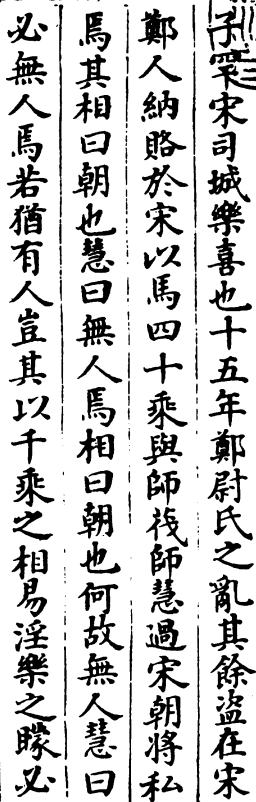 子罕宋司城樂喜也十五年鄭尉氏之亂其餘盜在宋
鄭人納賂於宋以馬四十乘與師茷師慧過宋朝將私
焉其相曰朝也慧曰無人焉相曰朝也何故無人慧曰
必無人焉若猶有人豈其以千乘之相易淫樂之矇必